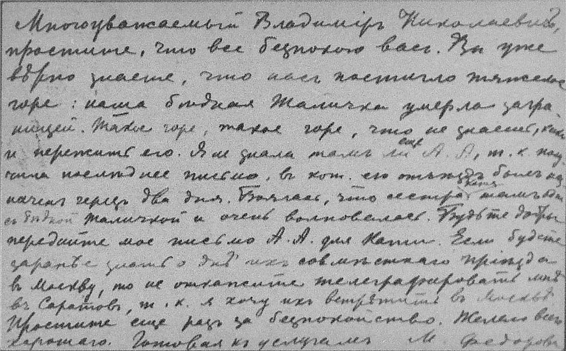 Многоуважаемый Владимiръ Николаевичъ,
простите, что все безпокою васъ. Вы уже
вѣрно знаете, что насъ постигло тяжелое
горе: наша бѣдная Жаличка умерла загра-
ницей. Такое горе, такое горе, что не знаешь, какъ
и пережить его. Я не знала тамъ ли еще А. А, т. к. полу-
чила послѣднее письмо, въ кот. его отъѣздъ былъ наз-
наченъ черезъ два дня. Боялась, что сестра тамъ
съ бѣдной Жаличкой и очень волновалась. Будьте добры
передайте мое письмо А. А. для Кати. Если будете
заранѣе знать о днѣ ихъ совмѣстнаго прiѣзда
въ Москву, то не откажите телеграфировать мнѣ
въ Саратовъ, т. к. я хочу ихъ встрѣтить въ Москвѣ.
Простите еще разъ за безпокойство. Желаю всего
хорошаго. Готовая къ услугамъ М. Федорова